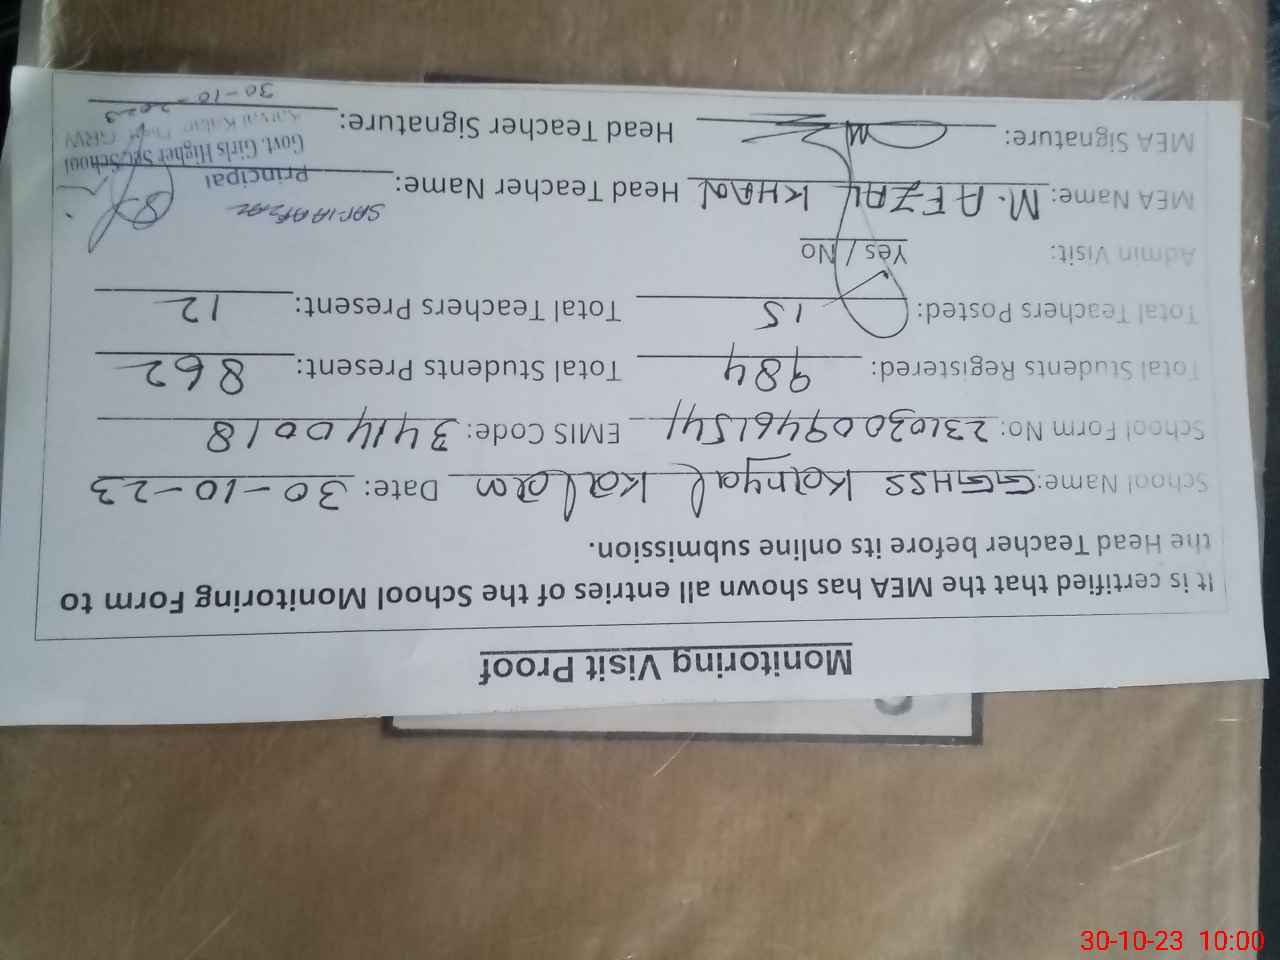 Monitoring Visit Proof
It is certified that the MEA has shown all entries of the School Monitoring Form to
the Head Teacher before its online submission.
School Name: GGHSS Kanyal Kalan Date: 30-10-23
School Form No: 2310300946154 EMIS Code: 34140018
Total Students Registered: 984 Total Students Present: 862
Total Teachers Posted: 15 Total Teachers Present: 12
Admin Visit: Yes / No
MEA Name: M. AFZAL KHAN Head Teacher Name: SAFIA AFZAL
Principal
Govt. Girls Higher Sec. School
MEA Signature: Head Teacher Signature:
30-10-2023
30-10-23 10:00